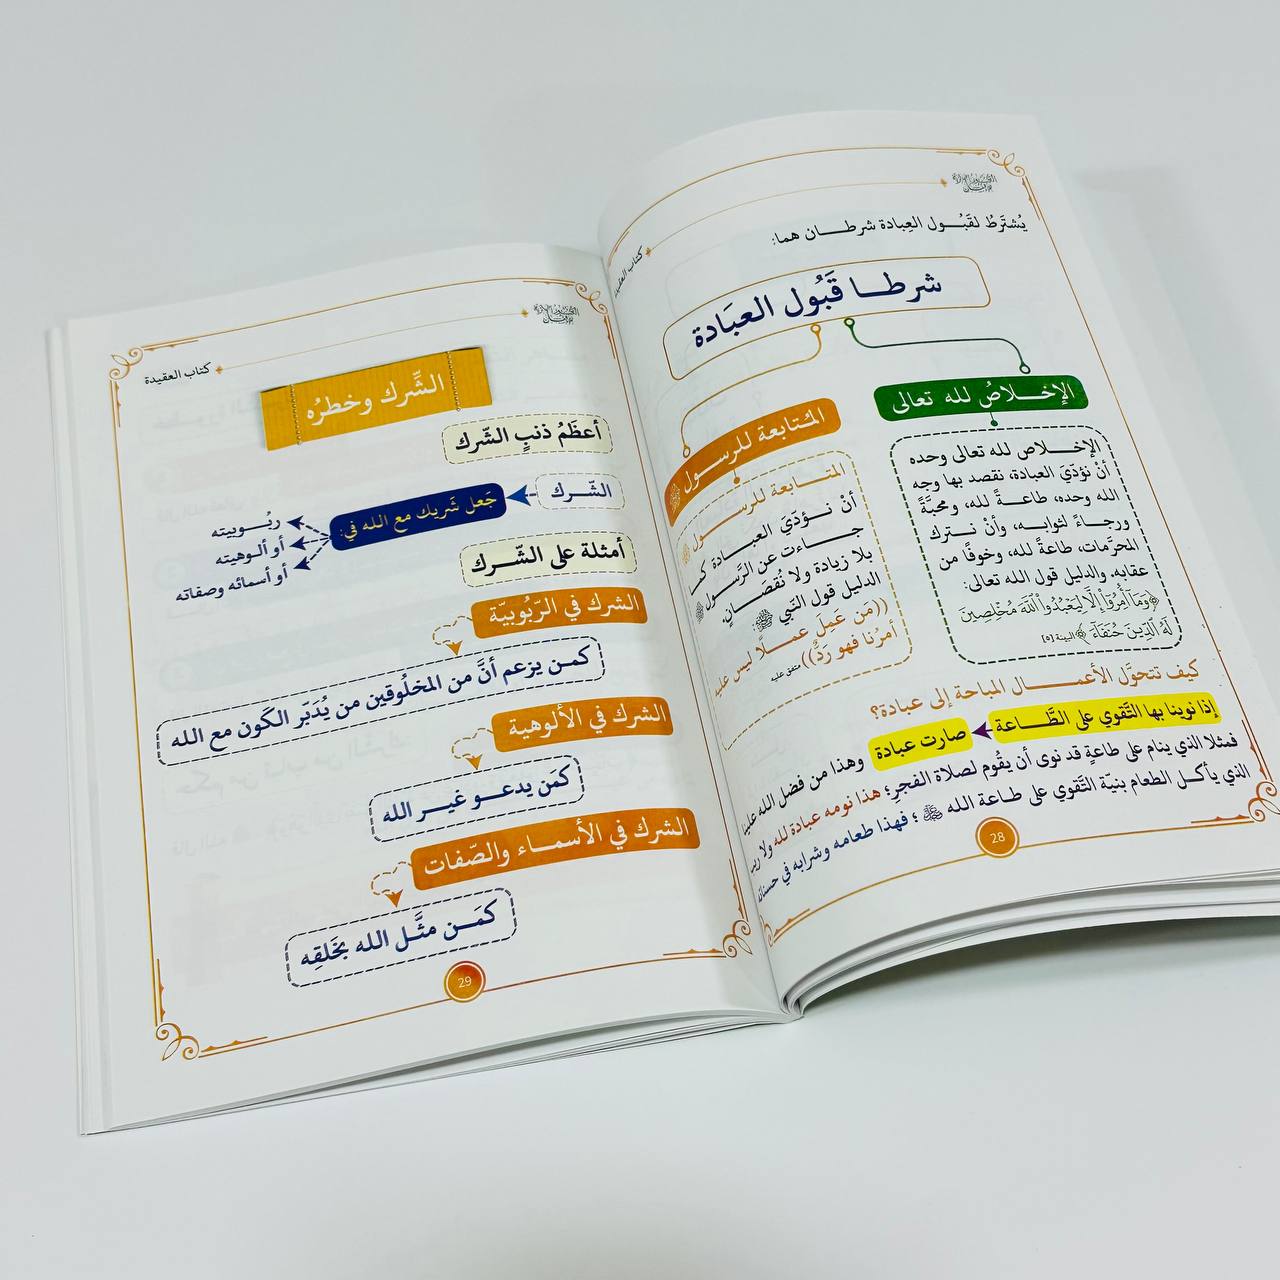 كتاب العقيدة
يُشترَطُ لقَبُول العِبادة شرطان هما:
شرطا قَبُول العبَادة
الإخلاصُ لله تعالى
الإخلاص لله تعالى وحده
أنْ نؤدّيَ العبادة، نقصد بها وجه
الله وحده، طاعةً لله، ومحبَّةً
ورجاءً لثوابه، وأنْ نترك
المحرَّمات، طاعةً لله، وخوفًا من
عقابه. والدليل قول الله تعالى:
﴿وَمَآ أُمِرُوٓاْ إِلَّا لِيَعۡبُدُواْ ٱللَّهَ مُخۡلِصِينَ
لَهُ ٱلدِّينَ حُنَفَآءَ﴾ [البينة ٥]
المُتابعة للرسول ﷺ
المتابعة للرسول ﷺ
أنْ نؤدّيَ العبادة كما
جاءت عن الرَّسول ﷺ
بلا زيادة ولا نُقصَانٍ،
الدليل قول النَّبي ﷺ:
((مَن عَمِلَ عملًا ليس عليه
أمرُنا فهو رَدٌّ)) متفق عليه
كيف تتحوَّل الأعمال المباحة إلى عبادة؟
إذا نوينا بها التَّقوي على الطَّاعة صارت عبادة وهذا من فضل الله علينا
فمثلا الذي ينام على طاعةٍ قد نوى أن يقُوم لصلاة الفجرِ؛ هذا نومه عبادة لله ولا ريب
الذي يأكل الطعام بنيّة التَّقوي على طاعة الله ﷻ؛ فهذا طعامه وشرابه في حسناته
28
كتاب العقيدة
الشِّرك وخطرُه
أعظَمُ ذنبٍ الشّرك
الشّرك جَعل شَريك مع الله في:
ربُوبيته
أو ألوهيته
أو أسمائه وصفاته
أمثلة على الشّرك
الشرك في الرّبُوبيّة
كمن يزعم أنَّ من المخلُوقين من يُدَبّر الكَون مع الله
الشرك في الألوهية
كمَن يدعو غير الله
الشرك في الأسماء والصّفات
كمَن مثَّل الله بخَلقِه
29